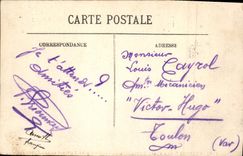 CARTE POSTALE
CORRESPONDANCE
ADRESSE
Je t'attends !....
amitiés
Monsieur
Louis Cayrol
Mécanicien
"Victor-Hugo"
Toulon
(Var)